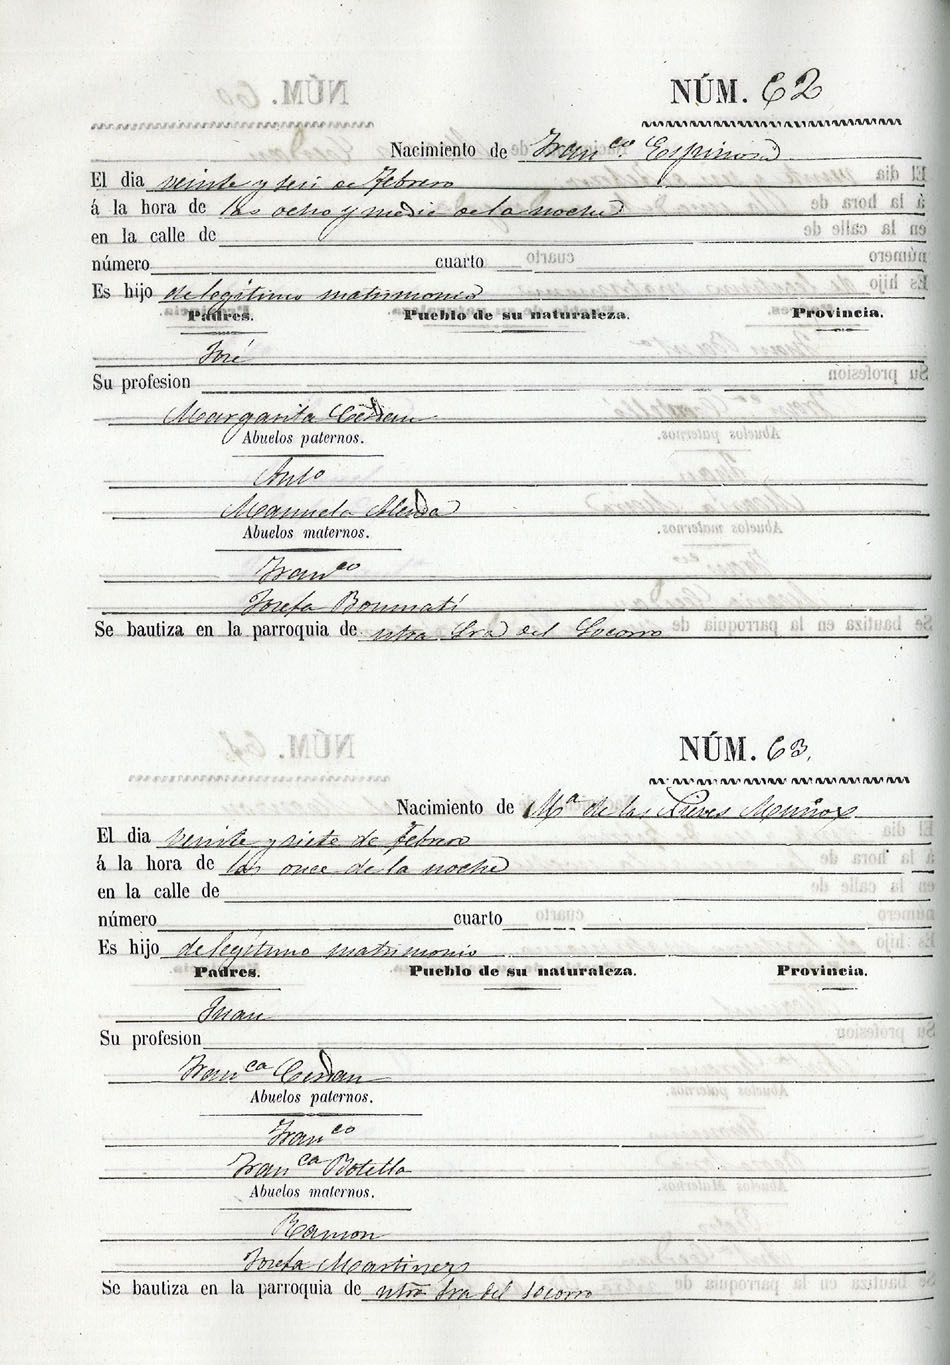 NÚM. 62
Nacimiento de Fran.co Espinosa
El dia veinte y seis de Febrero
á la hora de las ocho y media de la noche
en la calle de
número cuarto
Es hijo de legítimo matrimonio
Padres. Pueblo de su naturaleza. Provincia.
José
Su profesion
Margarita Cerdan
Abuelos paternos.
Anto
Manuela Alenda
Abuelos maternos.
Franco
Josefa Boumatí
Se bautiza en la parroquia de ntra Sra del Socorro
NÚM. 63.
Nacimiento de Ma de las Nieves Muñoz
El dia veinte y siete de febrero
á la hora de las once de la noche
en la calle de
número cuarto
Es hijo de legítimo matrimonio
Padres. Pueblo de su naturaleza. Provincia.
Juan
Su profesion
Franca Cerdan
Abuelos paternos.
Franco
Franca Botella
Abuelos maternos.
Ramon
Josefa Martinez
Se bautiza en la parroquia de ntra Sra del Socorro